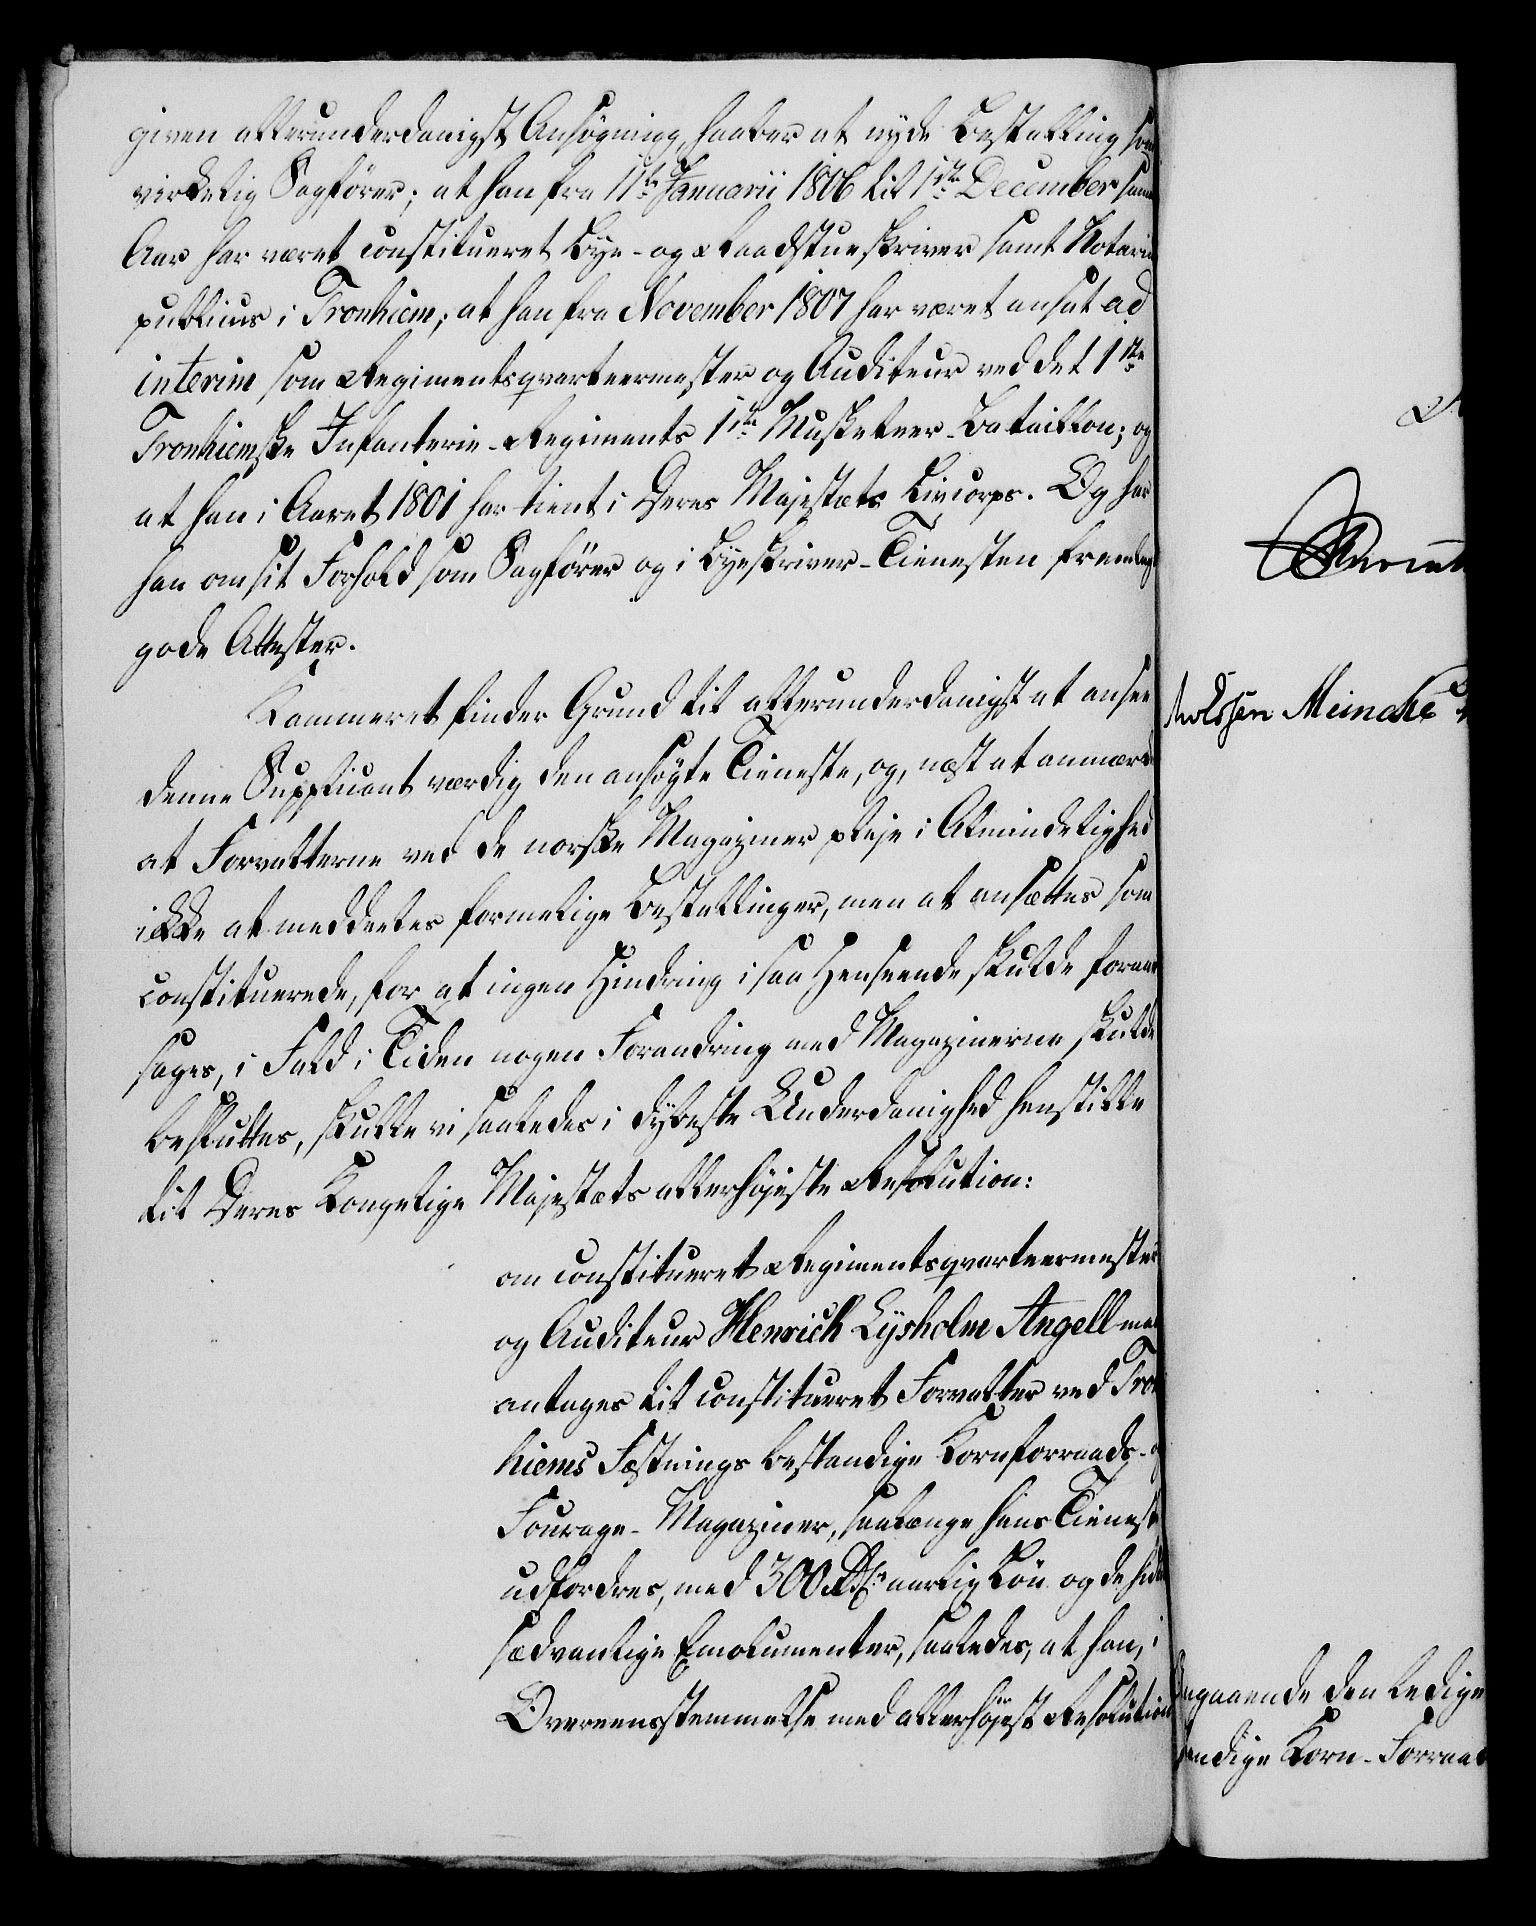 given allerunderdanigst Ansögning, haaber at nyde Bestalling som
virkelig Sagförer; at han fra 11te Januarii 1806 til 1ste December samme
Aar har været constitueret Bye- og Raadstueskriver samt Notarius
publicus i Tronhiem; at han fra November 1807 har været ansat ad
interim som Regimentsqvarteermester og Auditeur ved det 1ste
Tronhiemske Infanterie-Regiments 1ste Musketeer-Bataillon; og
at han i Aaret 1801 har tient i Deres Majestæts Livcorps. Og har
han om sit Forhold som Sagförer og i Byeskriver-Tienesten fremlagt
gode Attester.
Kammeret finder Grund til allerunderdanigst at ansee
denne Supplicant værdig den ansögte Tieneste, og, næst at anmærke
at Forvalterne ved de norske Magaziner pleje i Almindelighed
ikke at meddeeles formelige Bestallinger, men at ansættes som
constituerede, for at ingen Hindring i saa Henseende skulde foraar
sages, i Fald i Tiden nogen Forandring med Magazinerne skulde
besluttes, skulle vi saaledes i dybeste Underdanighed henstille
til Deres Kongelige Majestæts allerhöjeste Resolution:
om constitueret Regimentsqvarteermester
og Auditeur Henrich Lysholm Angell maa
antages til constitueret Forvalter ved Tron
hiems Fæstnings bestandige Kornforraads- og
Fourage-Magaziner, saalænge hans Tieneste
udfordres, med 300 Rdr aarlig Lön og de hidtil
sædvanlige Emolumenter, saaledes, at han, i
Overeensstemmelse med allerhöjest Resolution
Meincke
angaaende den ledige
andige Korn-Forraad